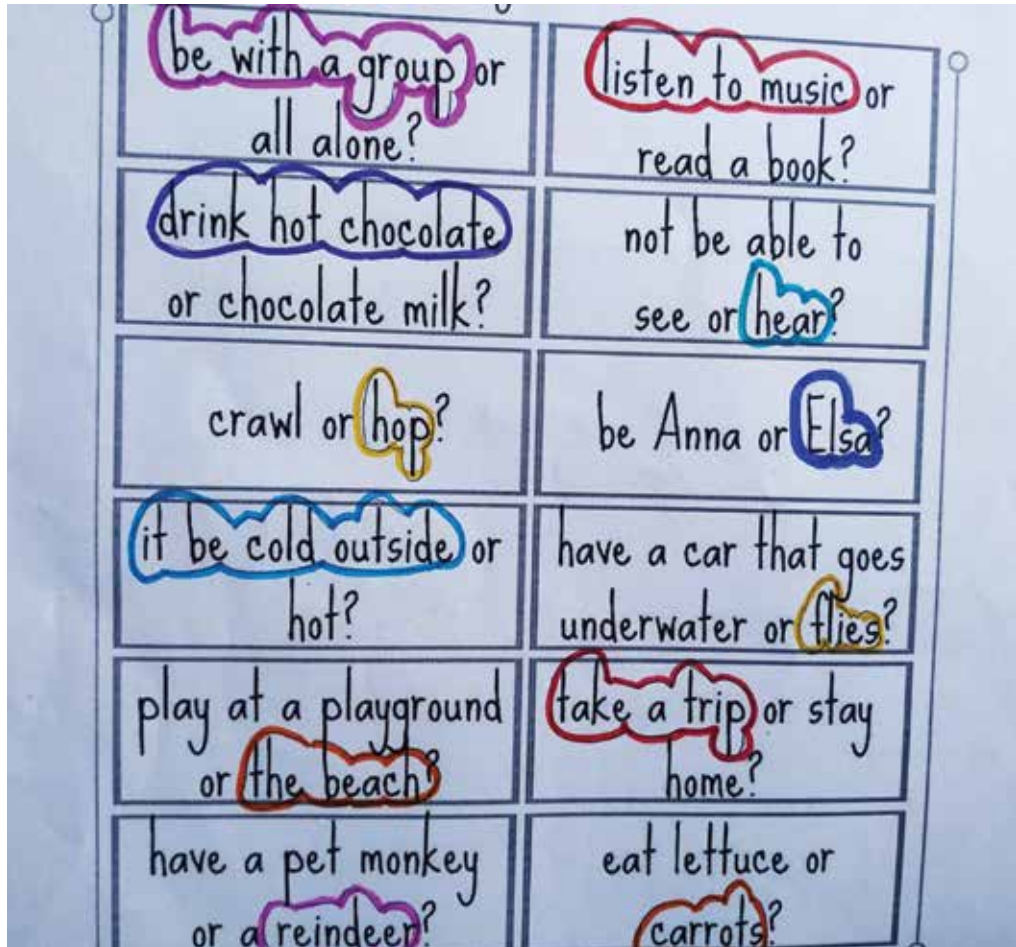 be with a group or
all alone?
listen to music or
read a book?
drink hot chocolate
or chocolate milk?
not be able to
see or hear?
crawl or hop?
be Anna or Elsa?
it be cold outside or
hot?
have a car that goes
underwater or flies?
play at a playground
or the beach?
take a trip or stay
home?
have a pet monkey
or a reindeer?
eat lettuce or
carrots?